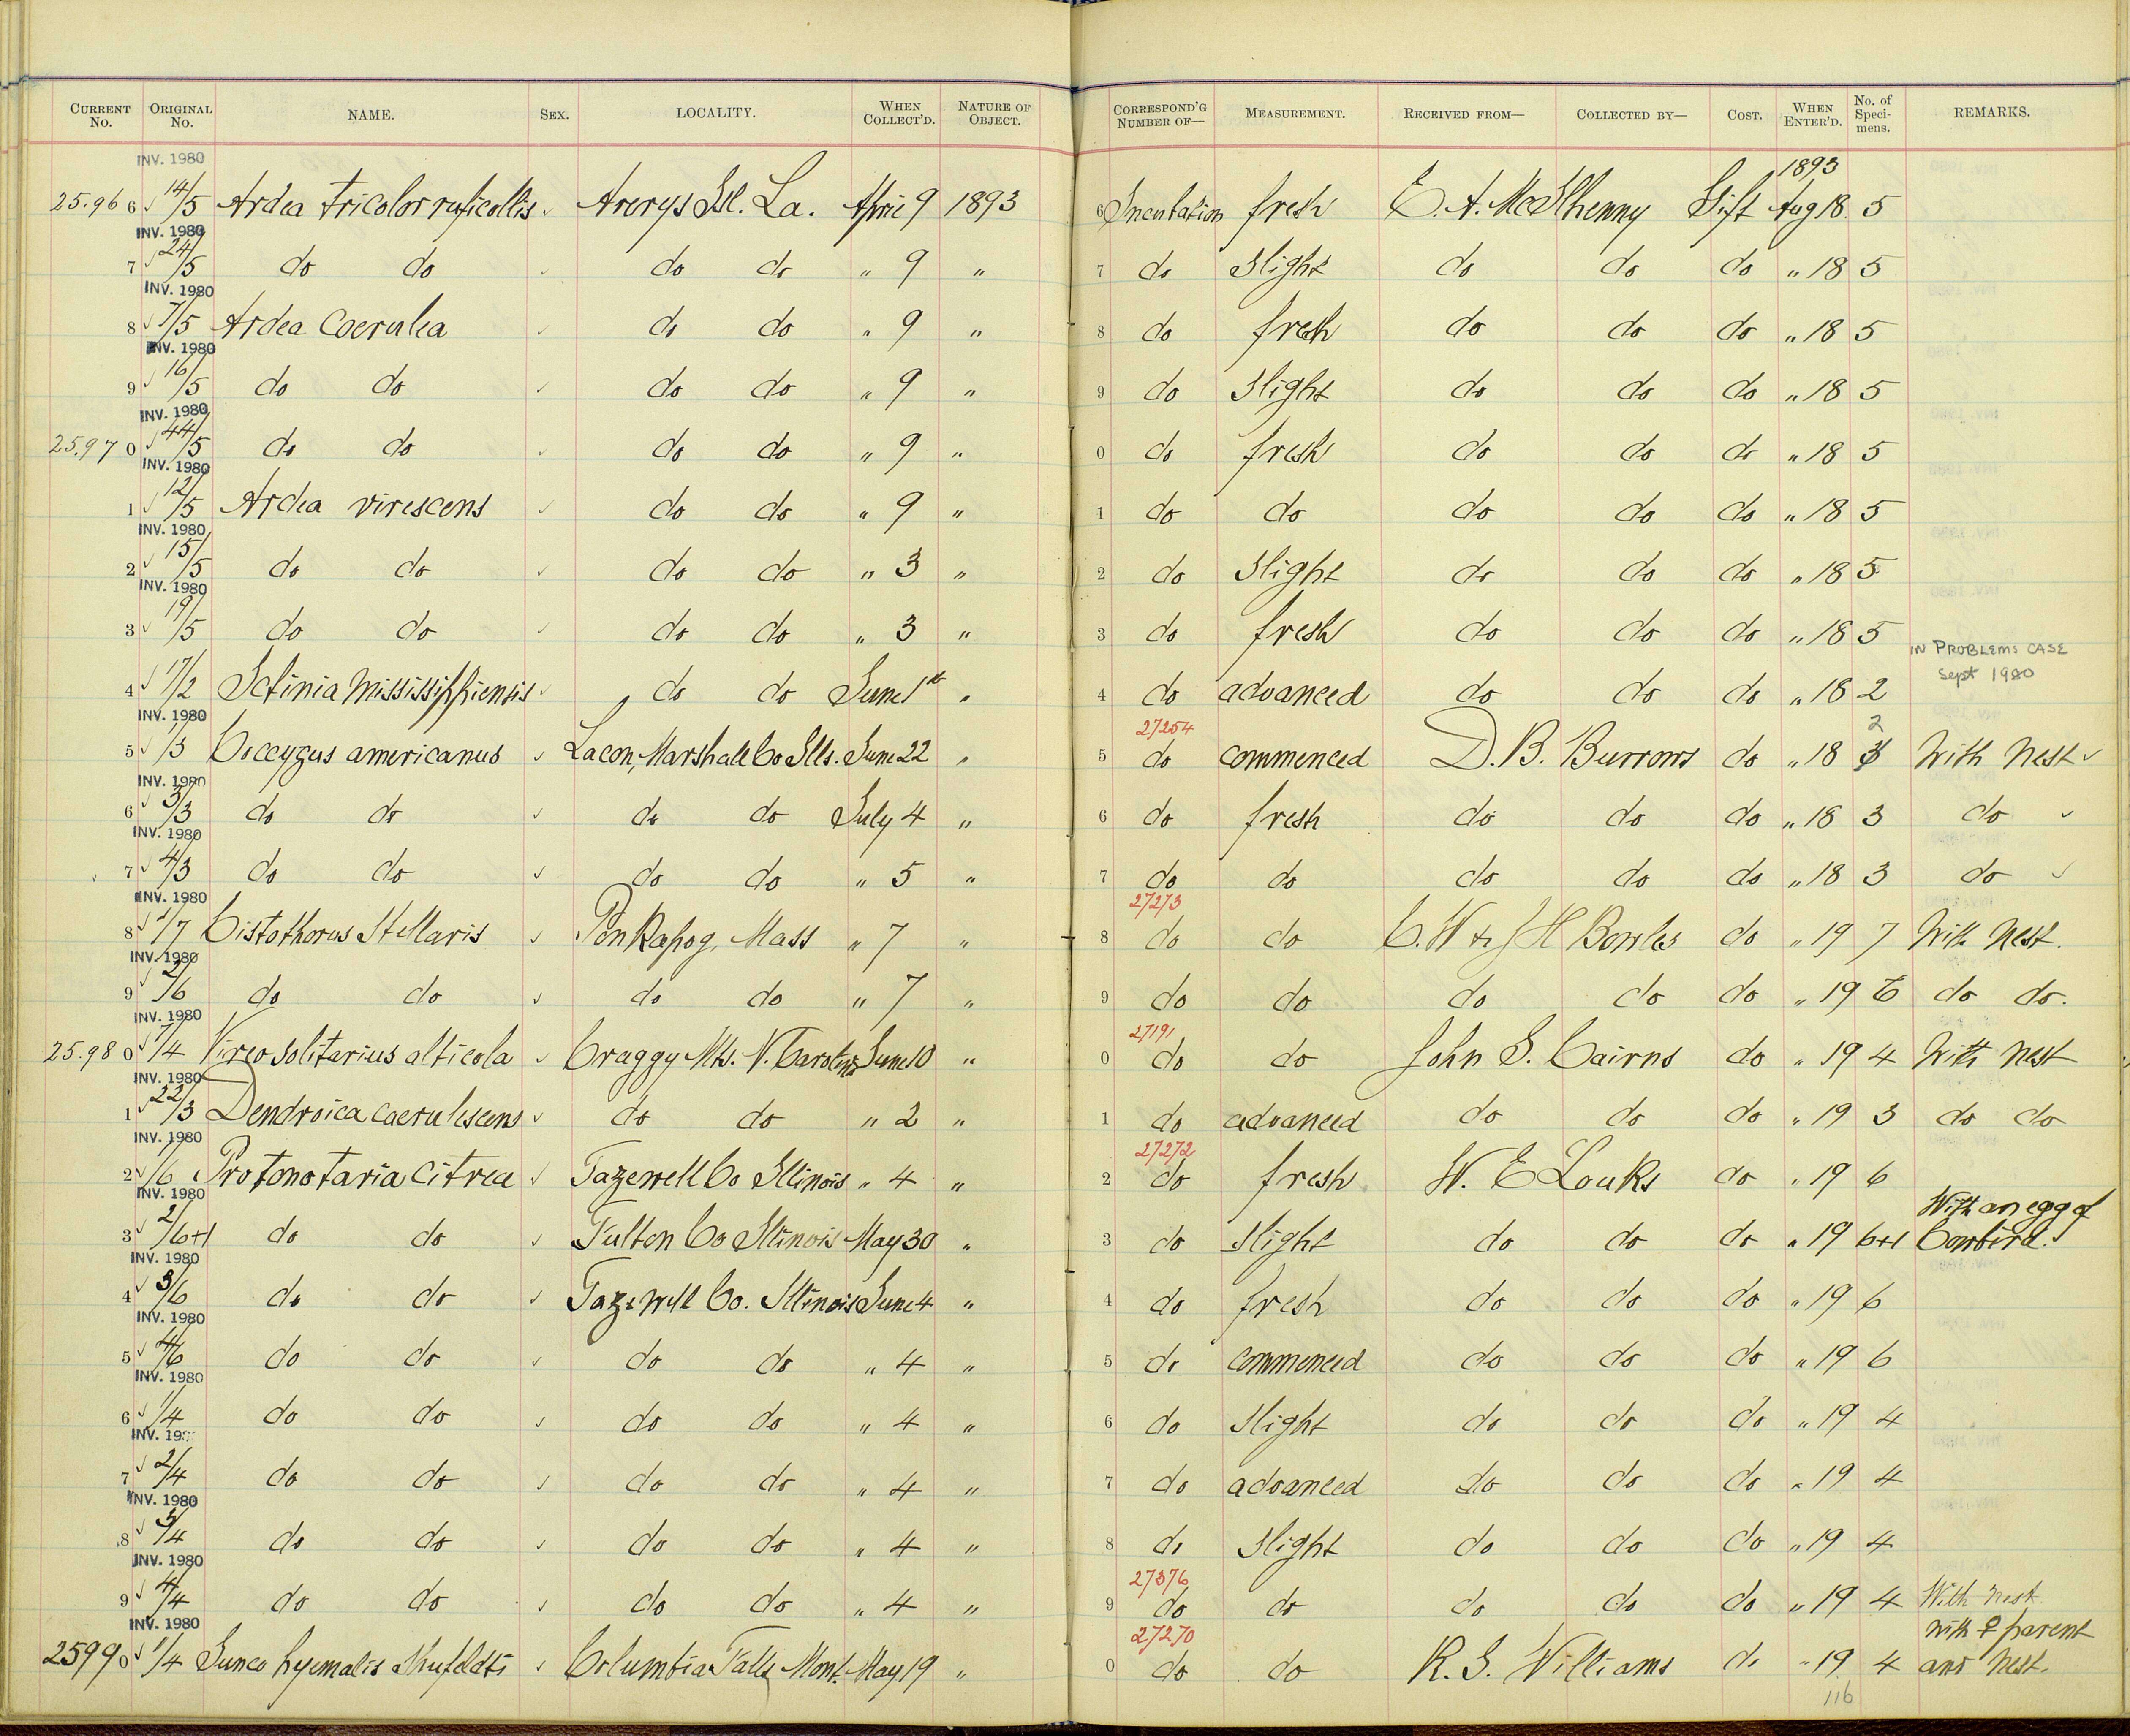 CURRENT No. ORIGINAL No. NAME. SEX. LOCALITY. WHEN COLLECT'D. NATURE OF OBJECT. CORRESPOND'G NUMBER OF— MEASUREMENT. RECEIVED FROM— COLLECTED BY— COST. WHEN ENTER'D. No. of Specimens. REMARKS.
INV. 1980 1893
25.96 6 √ 14/5 Ardea tricolor ruficollis √ Averys Isl. La. April 9 1893 6 Incubation fresh E. A. McIlhenny Gift Aug 18 5
INV. 1980
7 √ 24/5 do do √ do do " 9 " 7 do slight do do do " 18 5
INV. 1980
8 √ 7/5 Ardea Coerulea √ do do " 9 " 8 do fresh do do do " 18 5
INV. 1980
9 √ 16/5 do do √ do do " 9 " 9 do slight do do do " 18 5
INV. 1980
25.97 0 √ 44/5 do do √ do do " 9 " 0 do fresh do do do " 18 5
INV. 1980
1 √ 12/5 Ardea virescens √ do do " 9 " 1 do do do do do " 18 5
INV. 1980
2 √ 15/5 do do √ do do " 3 " 2 do slight do do do " 18 5
INV. 1980
3 √ 19/5 do do √ do do " 3 " 3 do fresh do do do " 18 5
IN PROBLEMS CASE
Sept 1980
4 √ 17/2 Ictinia Mississippiensis √ do do June 1st " 4 do advanced do do do " 18 2
INV. 1980 27254 2
5 √ 1/3 Coccyzus americanus √ Lacon, Marshall Co Ills. June 22 " 5 do commenced D. B. Burrows do " 18 3 With Nest √
INV. 1980
6 √ 3/3 do do √ do do July 4 " 6 do fresh do do do " 18 3 do √
INV. 1980
7 √ 4/3 do do √ do do " 5 " 7 do do do do do " 18 3 do √
INV. 1980 27273
8 √ 1/7 Cistothorus Stellaris √ Ponkapog, Mass " 7 " 8 do do C. W & J H Bowles do " 19 7 With Nest.
INV. 1980
9 √ 2/6 do do √ do do " 7 " 9 do do do do do " 19 6 do do.
INV. 1980 27191
25.98 0 √ 1/4 Vireo solitarius alticola √ Craggy Mts. N. Carolina June 10 " 0 do do John S. Cairns do " 19 4 With nest
INV. 1980
1 √ 22/3 Dendroica caerulescens √ do do " 2 " 1 do advanced do do do " 19 3 do do
INV. 1980 27272
2 √ 1/6 Protonotaria Citrea √ Tazewell Co Illinois " 4 " 2 do fresh W. E Louks do " 19 6
INV. 1980 With an egg of
3 √ 2/6+1 do do √ Fulton Co Illinois May 30 " 3 do slight do do do " 19 6+1 Cowbird.
INV. 1980
4 √ 3/6 do do √ Tazewell Co. Illinois June 4 " 4 do fresh do do do " 19 6
INV. 1980
5 √ 4/6 do do √ do do " 4 " 5 do commenced do do do " 19 6
INV. 1980
6 √ 1/4 do do √ do do " 4 " 6 do slight do do do " 19 4
INV. 19
7 √ 2/4 do do √ do do " 4 " 7 do advanced do do do " 19 4
INV. 1980
8 √ 3/4 do do √ do do " 4 " 8 do slight do do do " 19 4
INV. 1980 27376
9 √ 4/4 do do √ do do " 4 " 9 do do do do do " 19 4 With nest
INV. 1980 27270 With ♀ parent
2599 0 √ 1/4 Junco hyemalis Shufeldti √ Columbia Falls Mont. May 19 " 0 do do R. S. Williams do " 19 4 and Nest.
116